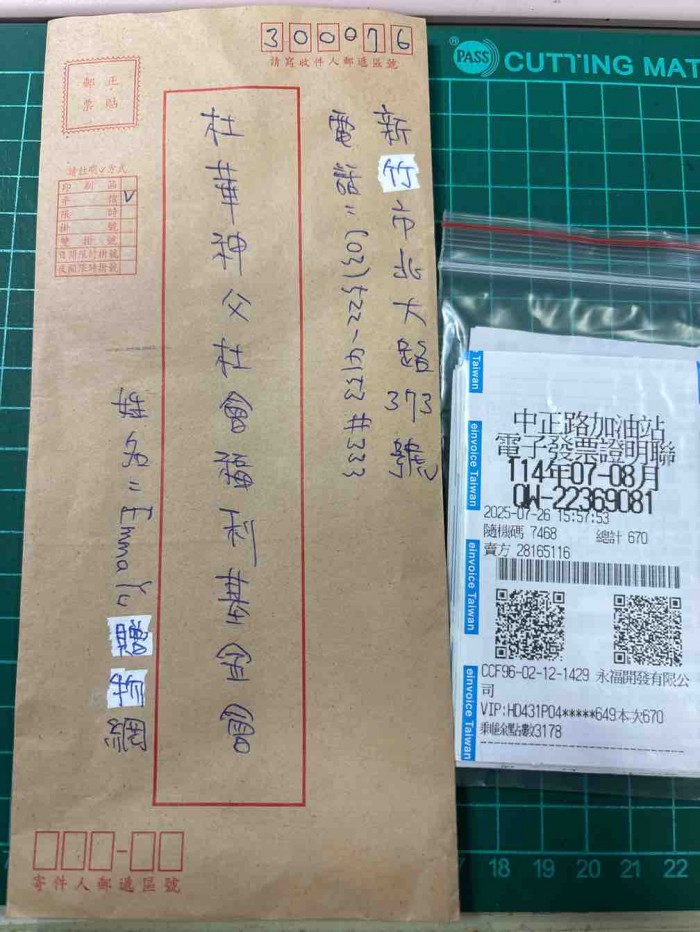 300076
請寫收件人郵遞區號
正貼
郵票
請註明∨方式
印刷區
平信 V
限時
掛號
雙掛號
日間限時掛號
夜間限時掛號
新竹市北大路373號
電話：(03)522-9153 #333
杜華神父社會福利基金會
姓名：Emma Yu 贈物網
寄件人郵遞區號
PASS
CUTTING MAT
einvoice Taiwan
einvoice Taiwan
einvoice Taiwan
Taiwan
中正路加油站
電子發票證明聯
114年07-08月
QW-22369081
2025-07-26 15:57:53
隨機碼 7468 總計 670
賣方 28165116
CCF96-02-12-1429 永福開發有限公
司
VIP:HD431P04*****649本次670
剩餘點數3178
18 19 20 21 22